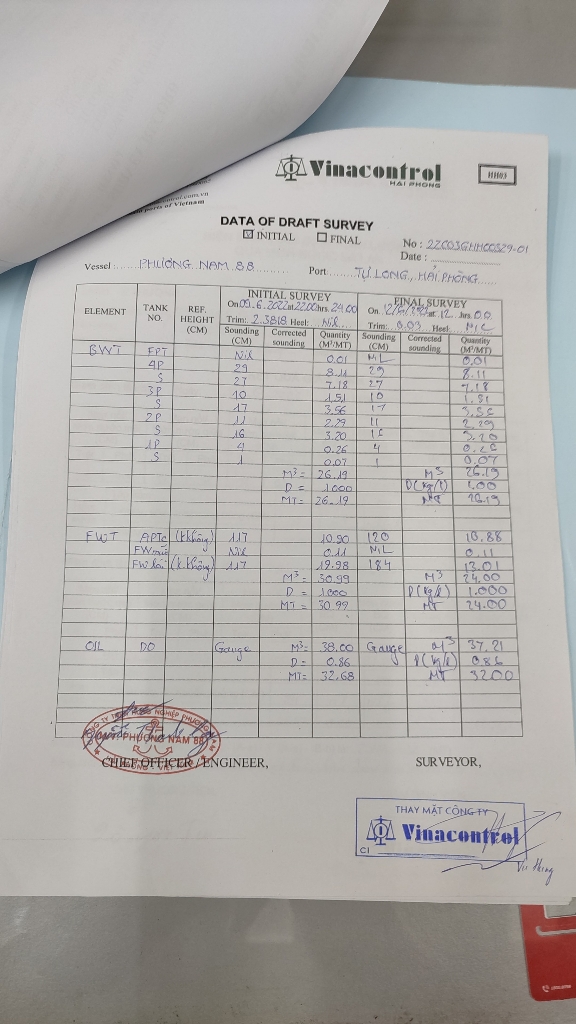 Vinacontrol
HẢI PHÒNG
HH03
ports of Vietnam
DATA OF DRAFT SURVEY
☑ INITIAL ☐ FINAL
No : 22C03GHH00329-01
Date :
Vessel : PHƯƠNG NAM 88 Port TỰ LONG, HẢI PHÒNG
ELEMENT TANK NO. REF. HEIGHT (CM) INITIAL SURVEY FINAL SURVEY
On 09.6.2022 at 22.00 hrs. 24.00 On at 12 hrs 00
Trim: 2.3818 Heel: Nil Trim: 0.03 Heel: NiL
Sounding (CM) Corrected sounding Quantity (M³/MT) Sounding (CM) Corrected sounding Quantity (M³/MT)
BWT FPT Nil 0.01 NiL 0.01
4P 29 8.11 29 8.11
S 27 7.18 27 7.18
3P 10 1.51 10 1.51
S 17 3.56 17 3.56
2P 11 2.29 11 2.29
S 16 3.20 16 3.20
1P 4 0.26 4 0.26
S 1 0.07 1 0.07
M³ = 26.19 M³ 26.19
D = 1.000 D(kg/l) 1.00
MT = 26.19 MT 26.19
FWT (k.không) 117 10.90 120 10.88
Nil 0.11 NiL 0.11
FW lái (k.không) 117 19.98 184 13.01
M³ = 30.99 M³ 24.00
D = 1.000 D(kg/l) 1.000
MT = 30.99 MT 24.00
OIL DO Gauge M³ = 38.00 Gauge M³ 37.21
D = 0.86 D(kg/l) 0.86
MT = 32.68 MT 32.00
PHƯƠNG NAM 88
CHIEF OFFICER / ENGINEER, SURVEYOR,
THAY MẶT CÔNG TY
Vinacontrol
CI